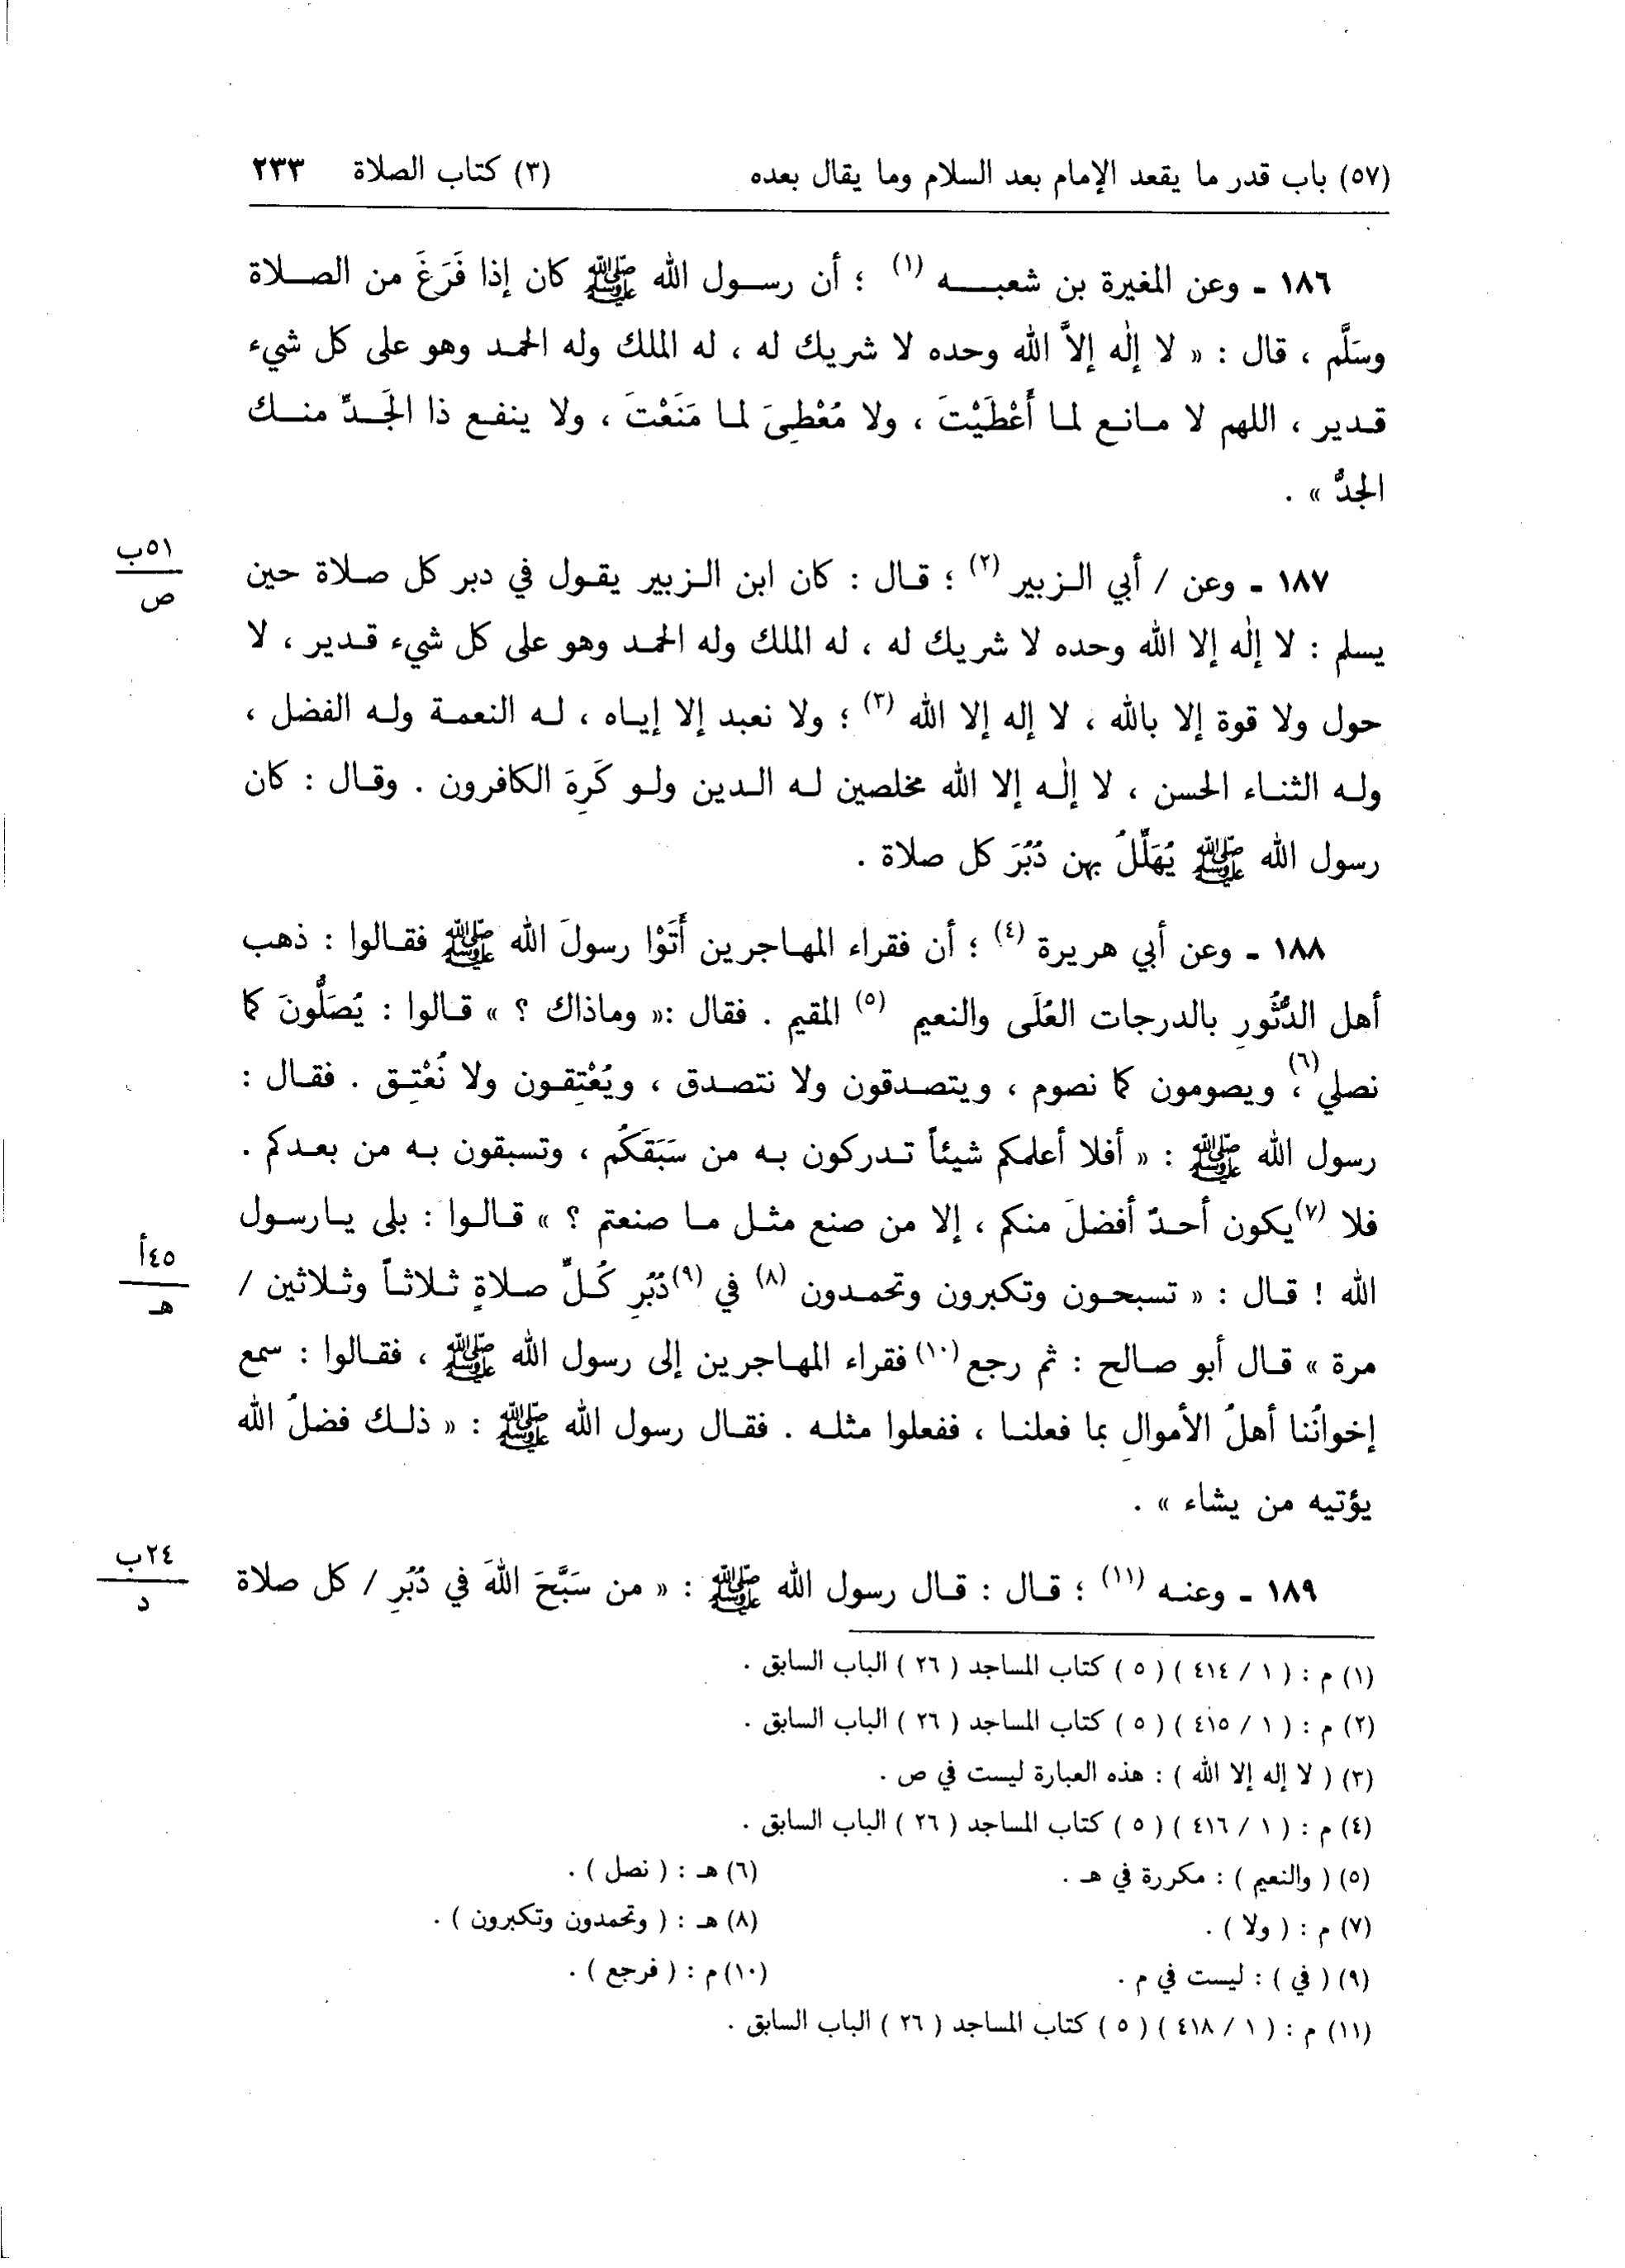 (٥٧) باب قدر ما يقعد الإمام بعد السلام وما يقال بعده (٣) كتاب الصلاة ٢٣٣
١٨٦ - وعن المغيرة بن شعبـــه (١) ؛ أن رسول الله ﷺ كان إذا فَرَغَ من الصلاة
وسَلَّم ، قال : « لا إلٰه إلاَّ الله وحده لا شريك له ، له الملك وله الحمد وهو على كل شيء
قدير ، اللهم لا مانع لما أَعْطَيْتَ ، ولا مُعْطِيَ لما مَنَعْتَ ، ولا ينفع ذا الجَدِّ منك
الجدُّ » .
٥١ب
ص
١٨٧ - وعن / أبي الزبير (٢) ؛ قال : كان ابن الزبير يقول في دبر كل صلاة حين
يسلم : لا إلٰه إلا الله وحده لا شريك له ، له الملك وله الحمد وهو على كل شيء قدير ، لا
حول ولا قوة إلا بالله ، لا إله إلا الله (٣) ؛ ولا نعبد إلا إياه ، له النعمة وله الفضل ،
وله الثناء الحسن ، لا إلٰه إلا الله مخلصين له الدين ولو كَرِهَ الكافرون . وقال : كان
رسول الله ﷺ يُهَلِّلُ بهن دُبُرَ كل صلاة .
١٨٨ - وعن أبي هريرة (٤) ؛ أن فقراء المهاجرين أَتَوْا رسولَ الله ﷺ فقالوا : ذهب
أهل الدُّثُورِ بالدرجات العُلَى والنعيم (٥) المقيم . فقال :« وماذاك ؟ » قالوا : يُصَلُّونَ كما
نصلي (٦)، ويصومون كما نصوم ، ويتصدقون ولا نتصدق ، ويُعْتِقون ولا نُعْتِق . فقال :
رسول الله ﷺ : « أفلا أعلمكم شيئاً تدركون به من سَبَقَكُم ، وتسبقون به من بعدكم .
فلا (٧)يكون أحدٌ أفضلَ منكم ، إلا من صنع مثل ما صنعتم ؟ » قالوا : بلى يارسول
٤٥أ
هـ
الله ! قال : « تسبحون وتكبرون وتحمدون (٨) في (٩)دُبُرِ كُلِّ صلاةٍ ثلاثاً وثلاثين /
مرة » قال أبو صالح : ثم رجع (١٠)فقراء المهاجرين إلى رسول الله ﷺ ، فقالوا : سمع
إخوانُنا أهلُ الأموالِ بما فعلنا ، ففعلوا مثله . فقال رسول الله ﷺ : « ذلك فضلُ الله
يؤتيه من يشاء » .
٢٤ب
د
١٨٩ - وعنه (١١) ؛ قال : قال رسول الله ﷺ : « من سَبَّحَ اللهَ في دُبُرِ / كل صلاة
(١) م : ( ١ / ٤١٤ ) ( ٥ ) كتاب المساجد ( ٢٦ ) الباب السابق .
(٢) م : ( ١ / ٤١٥ ) ( ٥ ) كتاب المساجد ( ٢٦ ) الباب السابق .
(٣) ( لا إله إلا الله ) : هذه العبارة ليست في ص .
(٤) م : ( ١ / ٤١٦ ) ( ٥ ) كتاب المساجد ( ٢٦ ) الباب السابق .
(٥) ( والنعيم ) : مكررة في هـ . (٦) هـ : ( نصل ) .
(٧) م : ( ولا ) . (٨) هـ : ( وتحمدون وتكبرون ) .
(٩) ( في ) : ليست في م . (١٠) م : ( فرجع ) .
(١١) م : ( ١ / ٤١٨ ) ( ٥ ) كتاب المساجد ( ٢٦ ) الباب السابق .